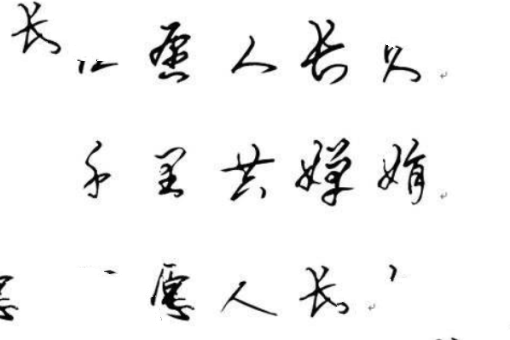 长 愿人长久
千里共婵娟
愿人长